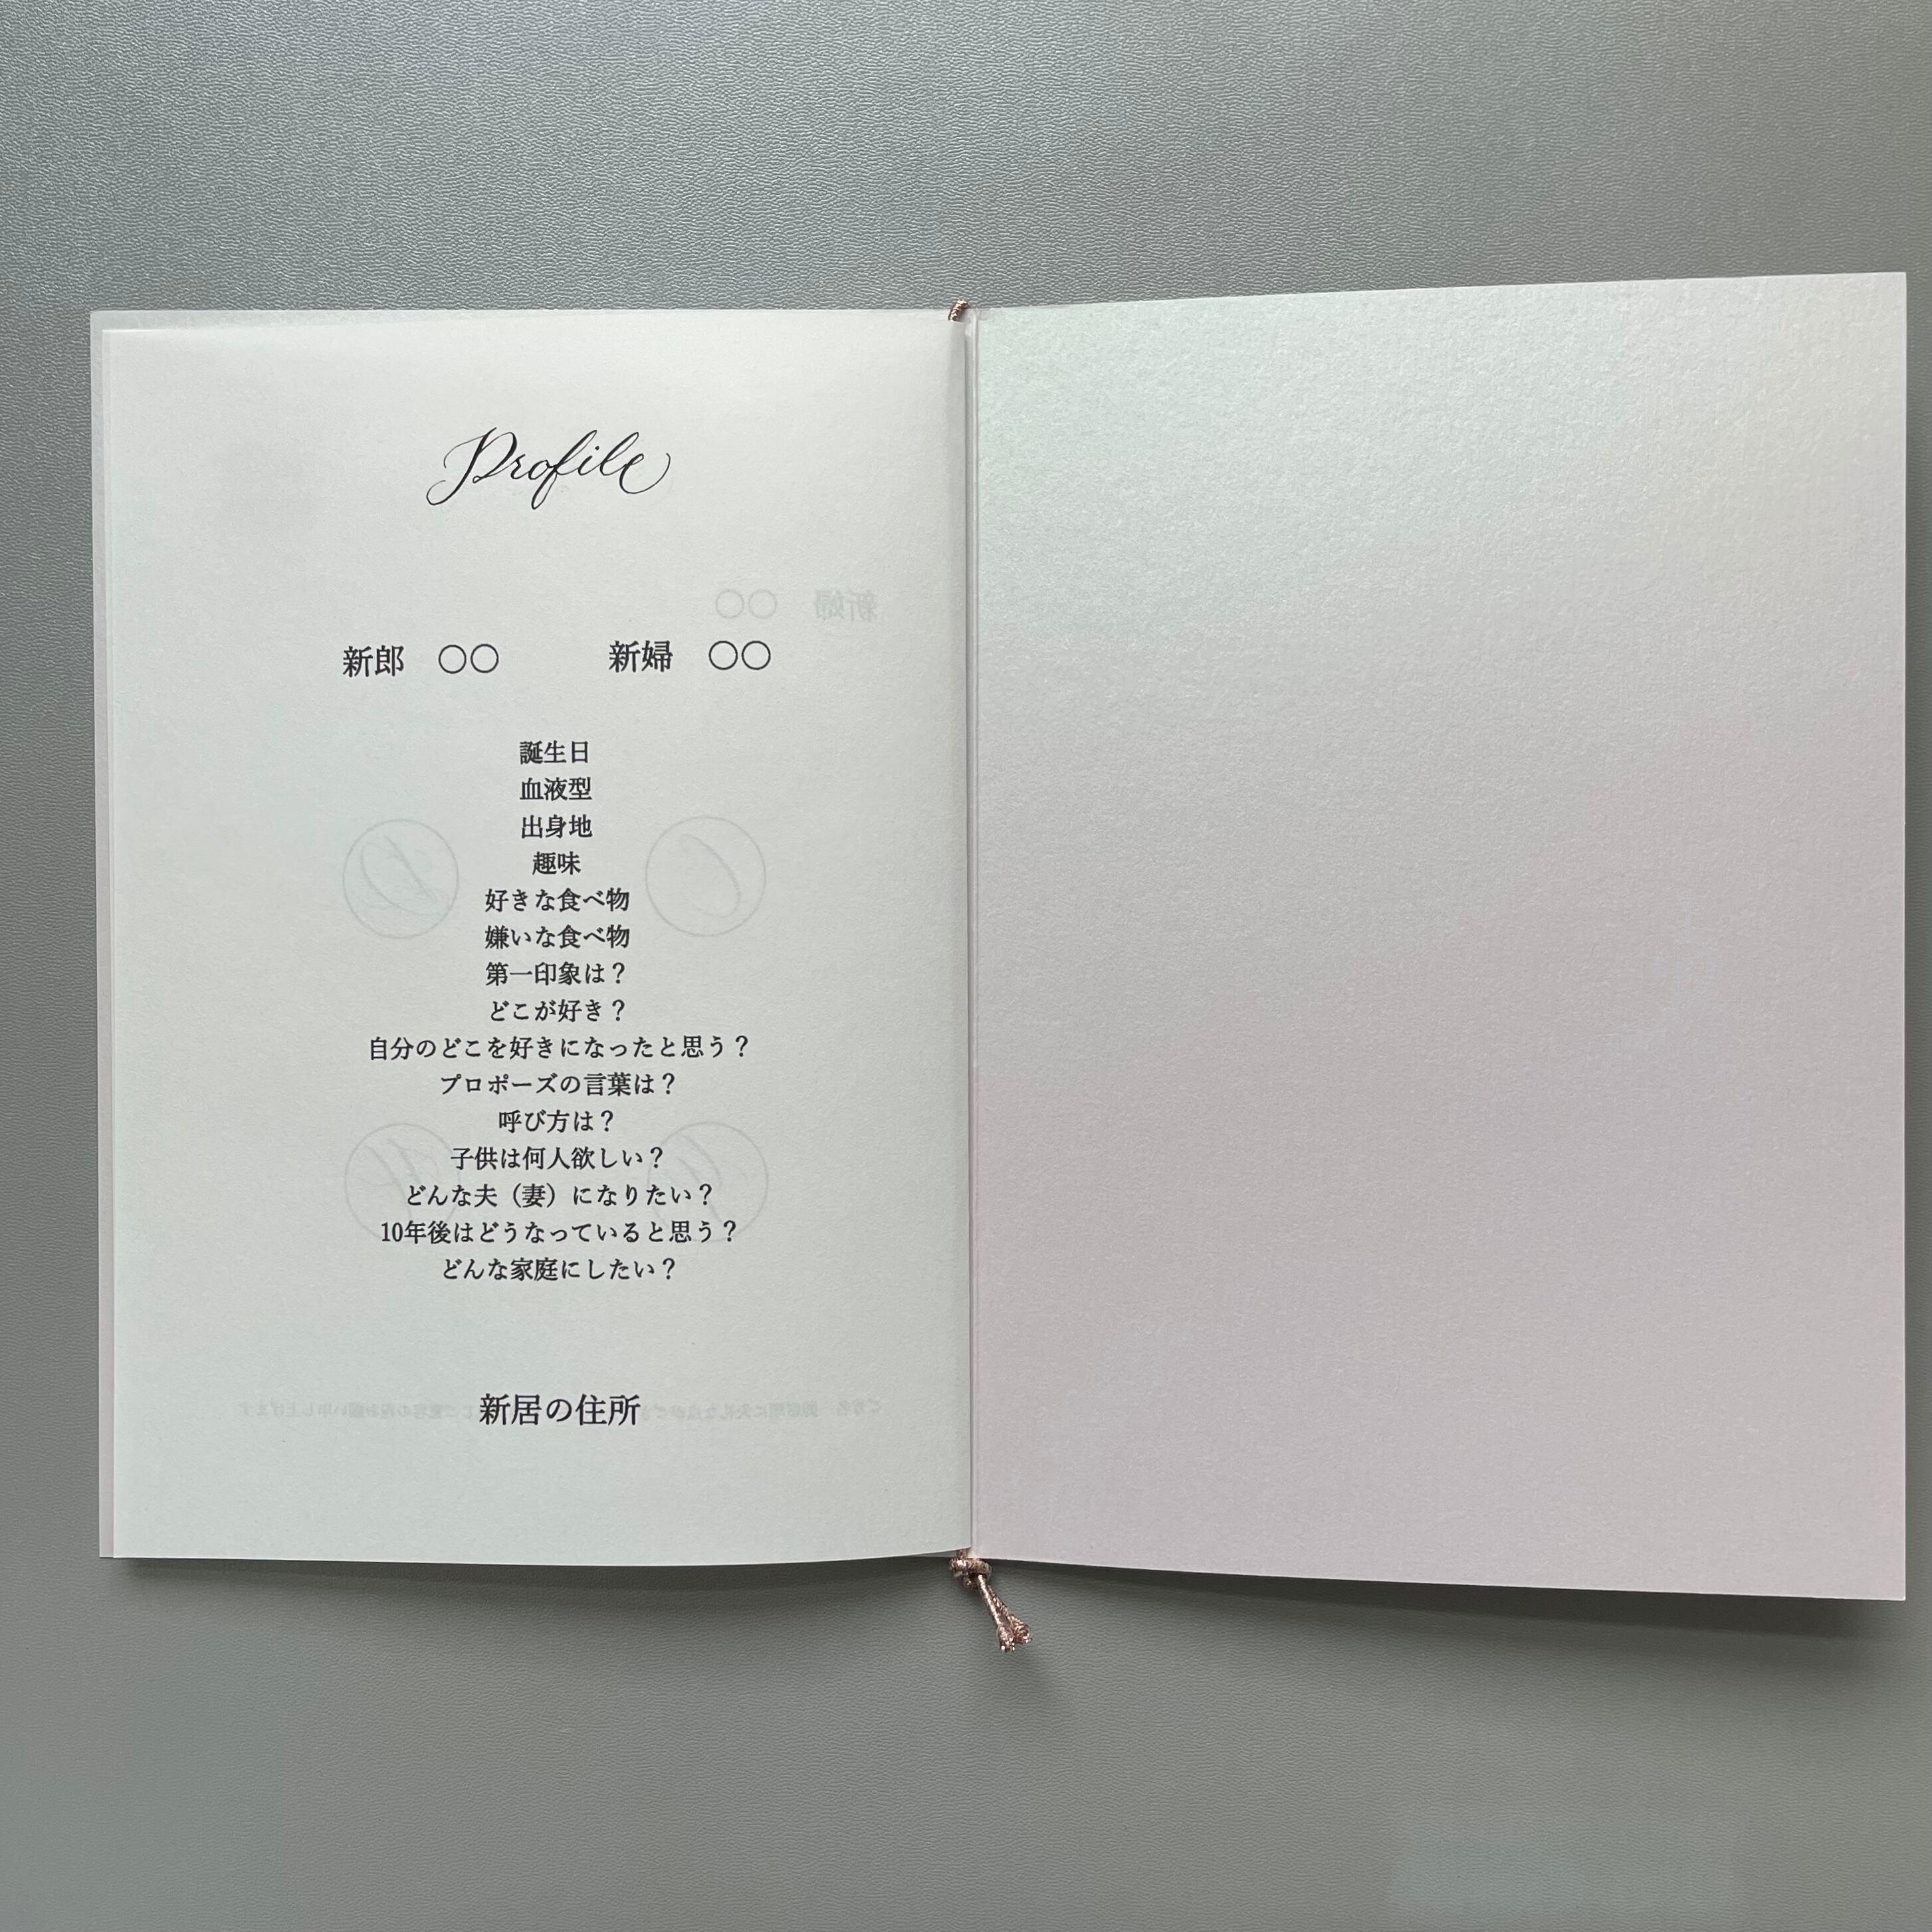 Profile
新郎　〇〇　　新婦　〇〇
誕生日
血液型
出身地
趣味
好きな食べ物
嫌いな食べ物
第一印象は？
どこが好き？
自分のどこを好きになったと思う？
プロポーズの言葉は？
呼び方は？
子供は何人欲しい？
どんな夫（妻）になりたい？
10年後はどうなっていると思う？
どんな家庭にしたい？
新居の住所